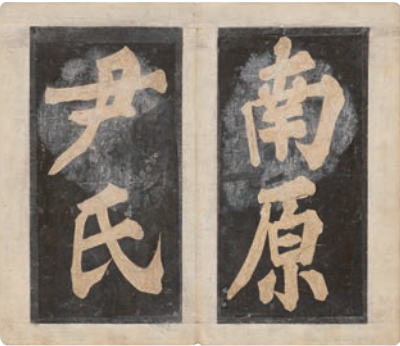 南原
尹氏